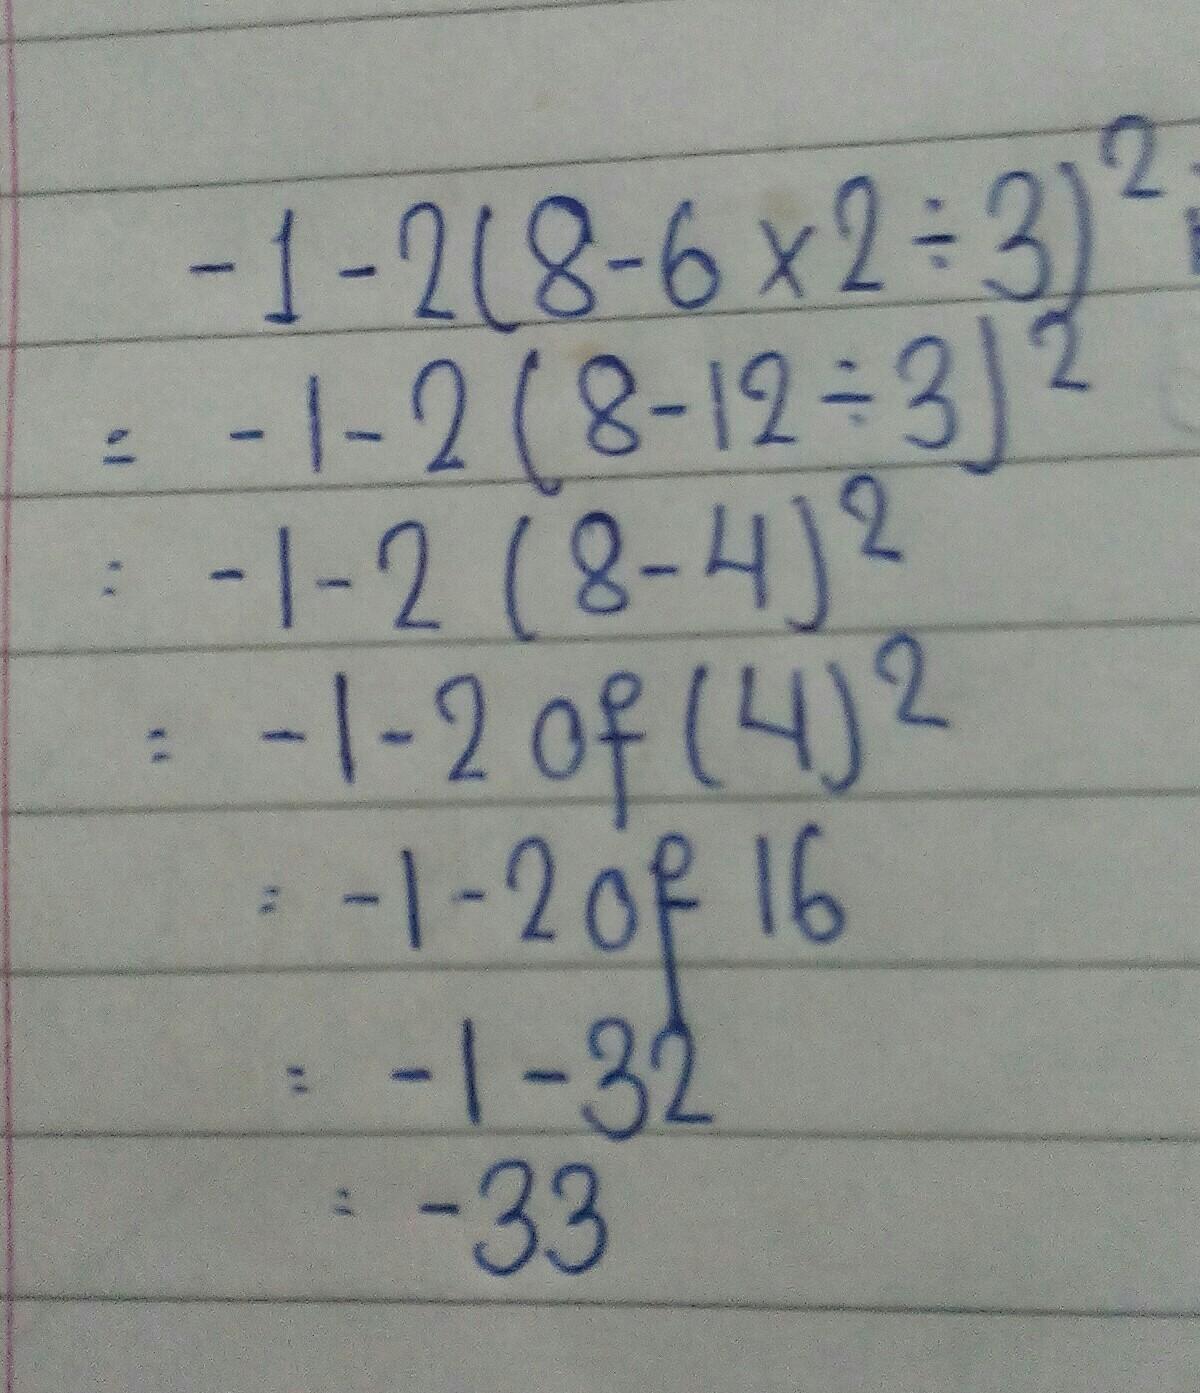 -1-2(8-6×2÷3)²
= -1-2(8-12÷3)²
= -1-2(8-4)²
= -1-2 of (4)²
= -1-2 of 16
= -1-32
= -33